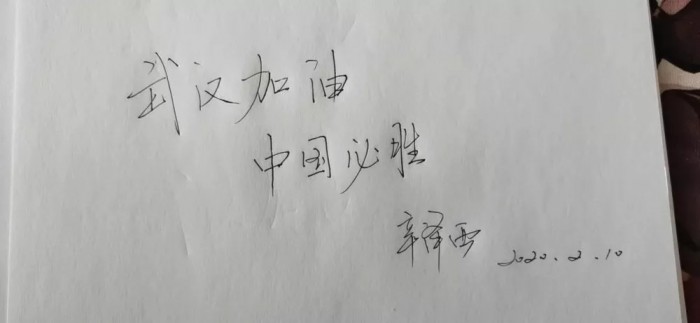 武汉加油
中国必胜
辛泽西 2020.2.10